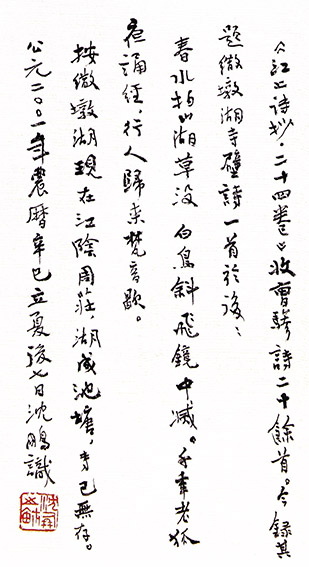 《江上诗抄·二十四卷》收曹驂詩二十餘首。今録其
题微墩湖寺壁詩一首於後：
春水拍山湖草没 白鳥斜飛鏡中滅。千年老狐
夜誦經，行人歸来梵音歇。
按微墩湖現在江陰周莊，湖成池塘，寺已無存。
公元二〇〇一年農曆辛巳立夏後七日沈鵬識